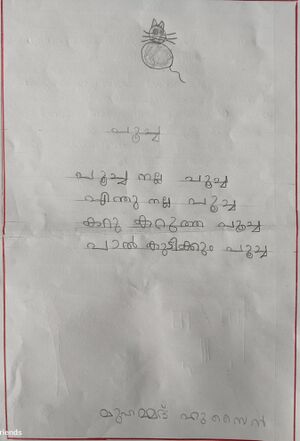 പൂച്ച
പൂച്ച നല്ല പൂച്ച
എന്തു നല്ല പൂച്ച
കറു കറുത്ത പൂച്ച
പാൽ കുടിക്കും പൂച്ച
മുഹമ്മദ് ഹുസൈൻ
riends